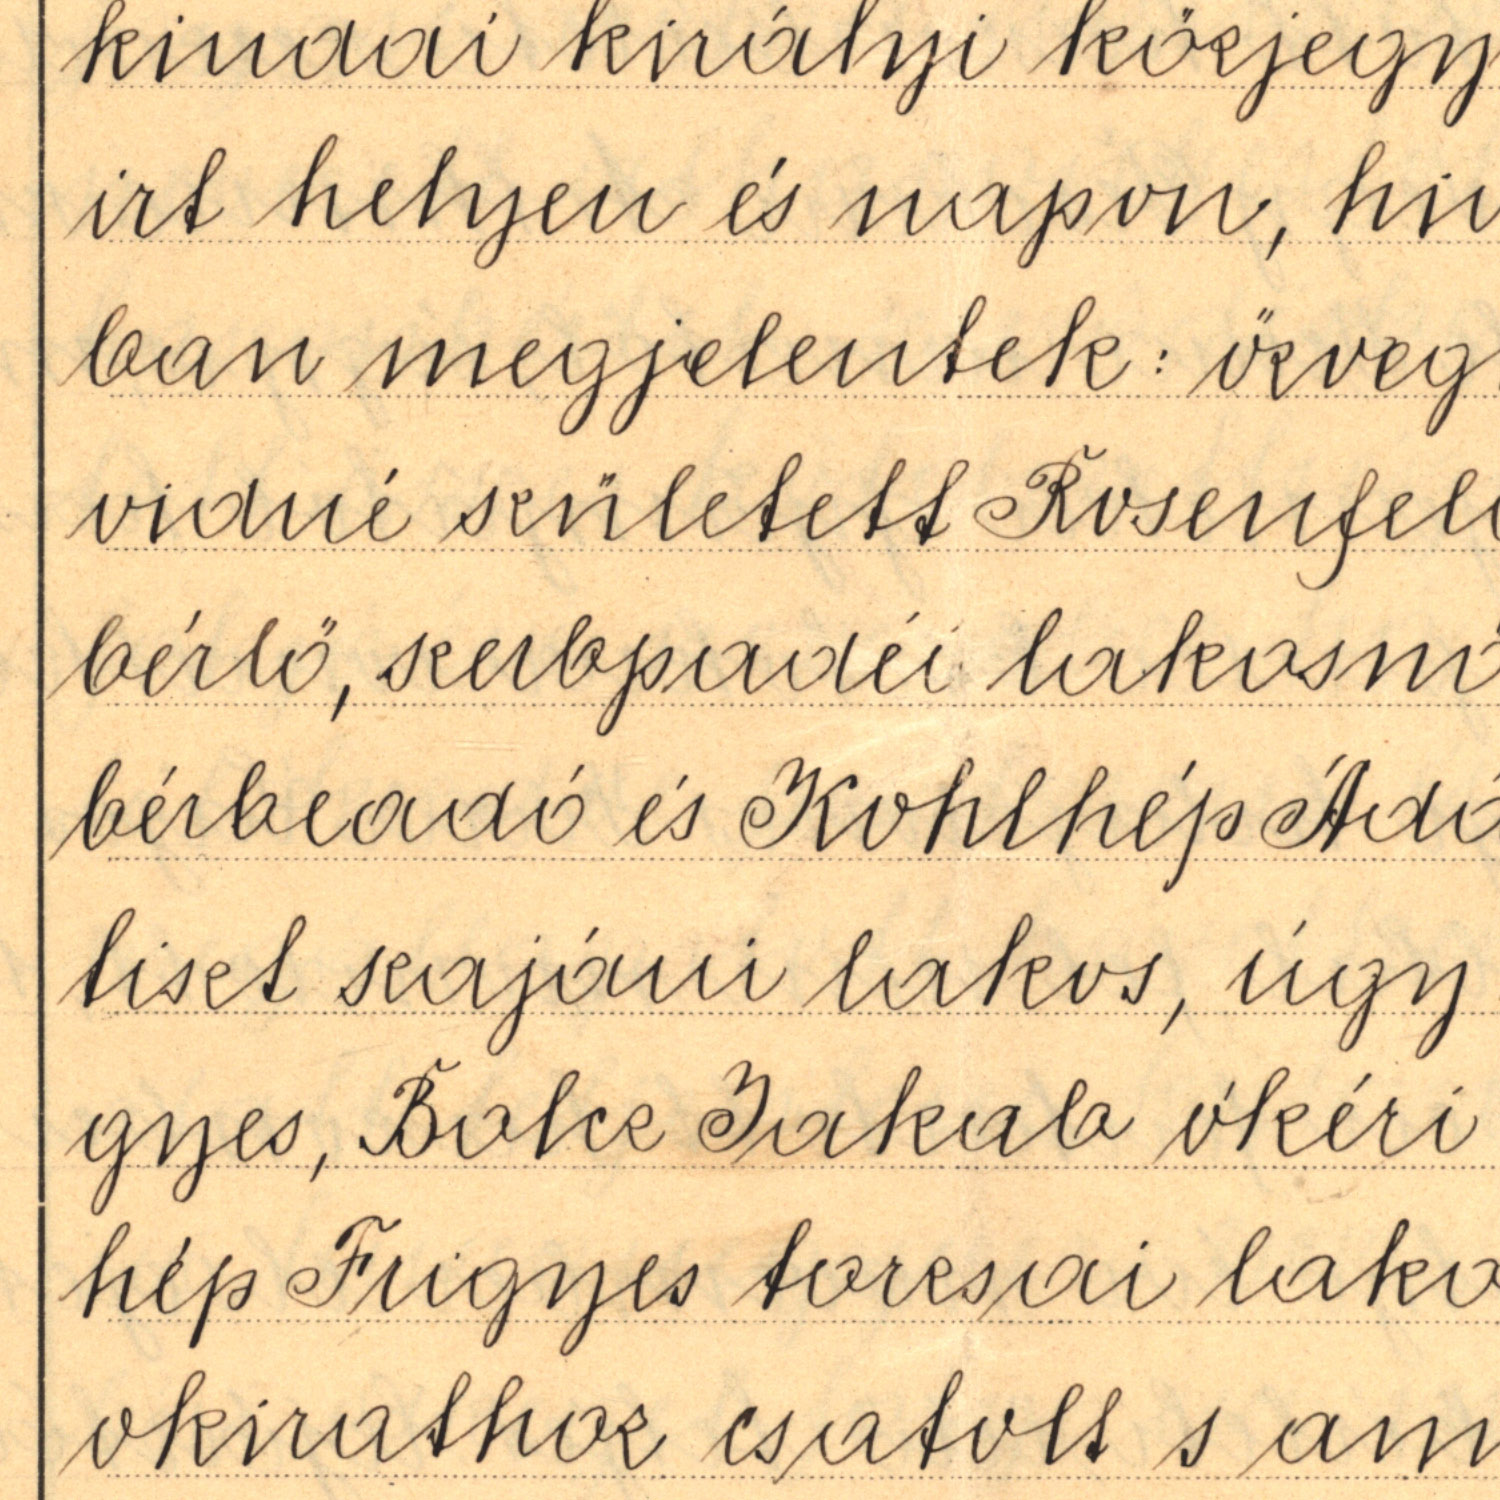 kindai királyi közjegy
irt helyen és napon, hiv
ban megjelentek: özveg
vidné született Rosenfeld
bérlő, szerbpadéi lakosnő
bérbeadó és Kohlhép Ádá
tiszt szajáni lakos, úgy
gyes, Bolcz Jakab ókéri
hép Frigyes torzsai lako
okirathoz csatolt s am